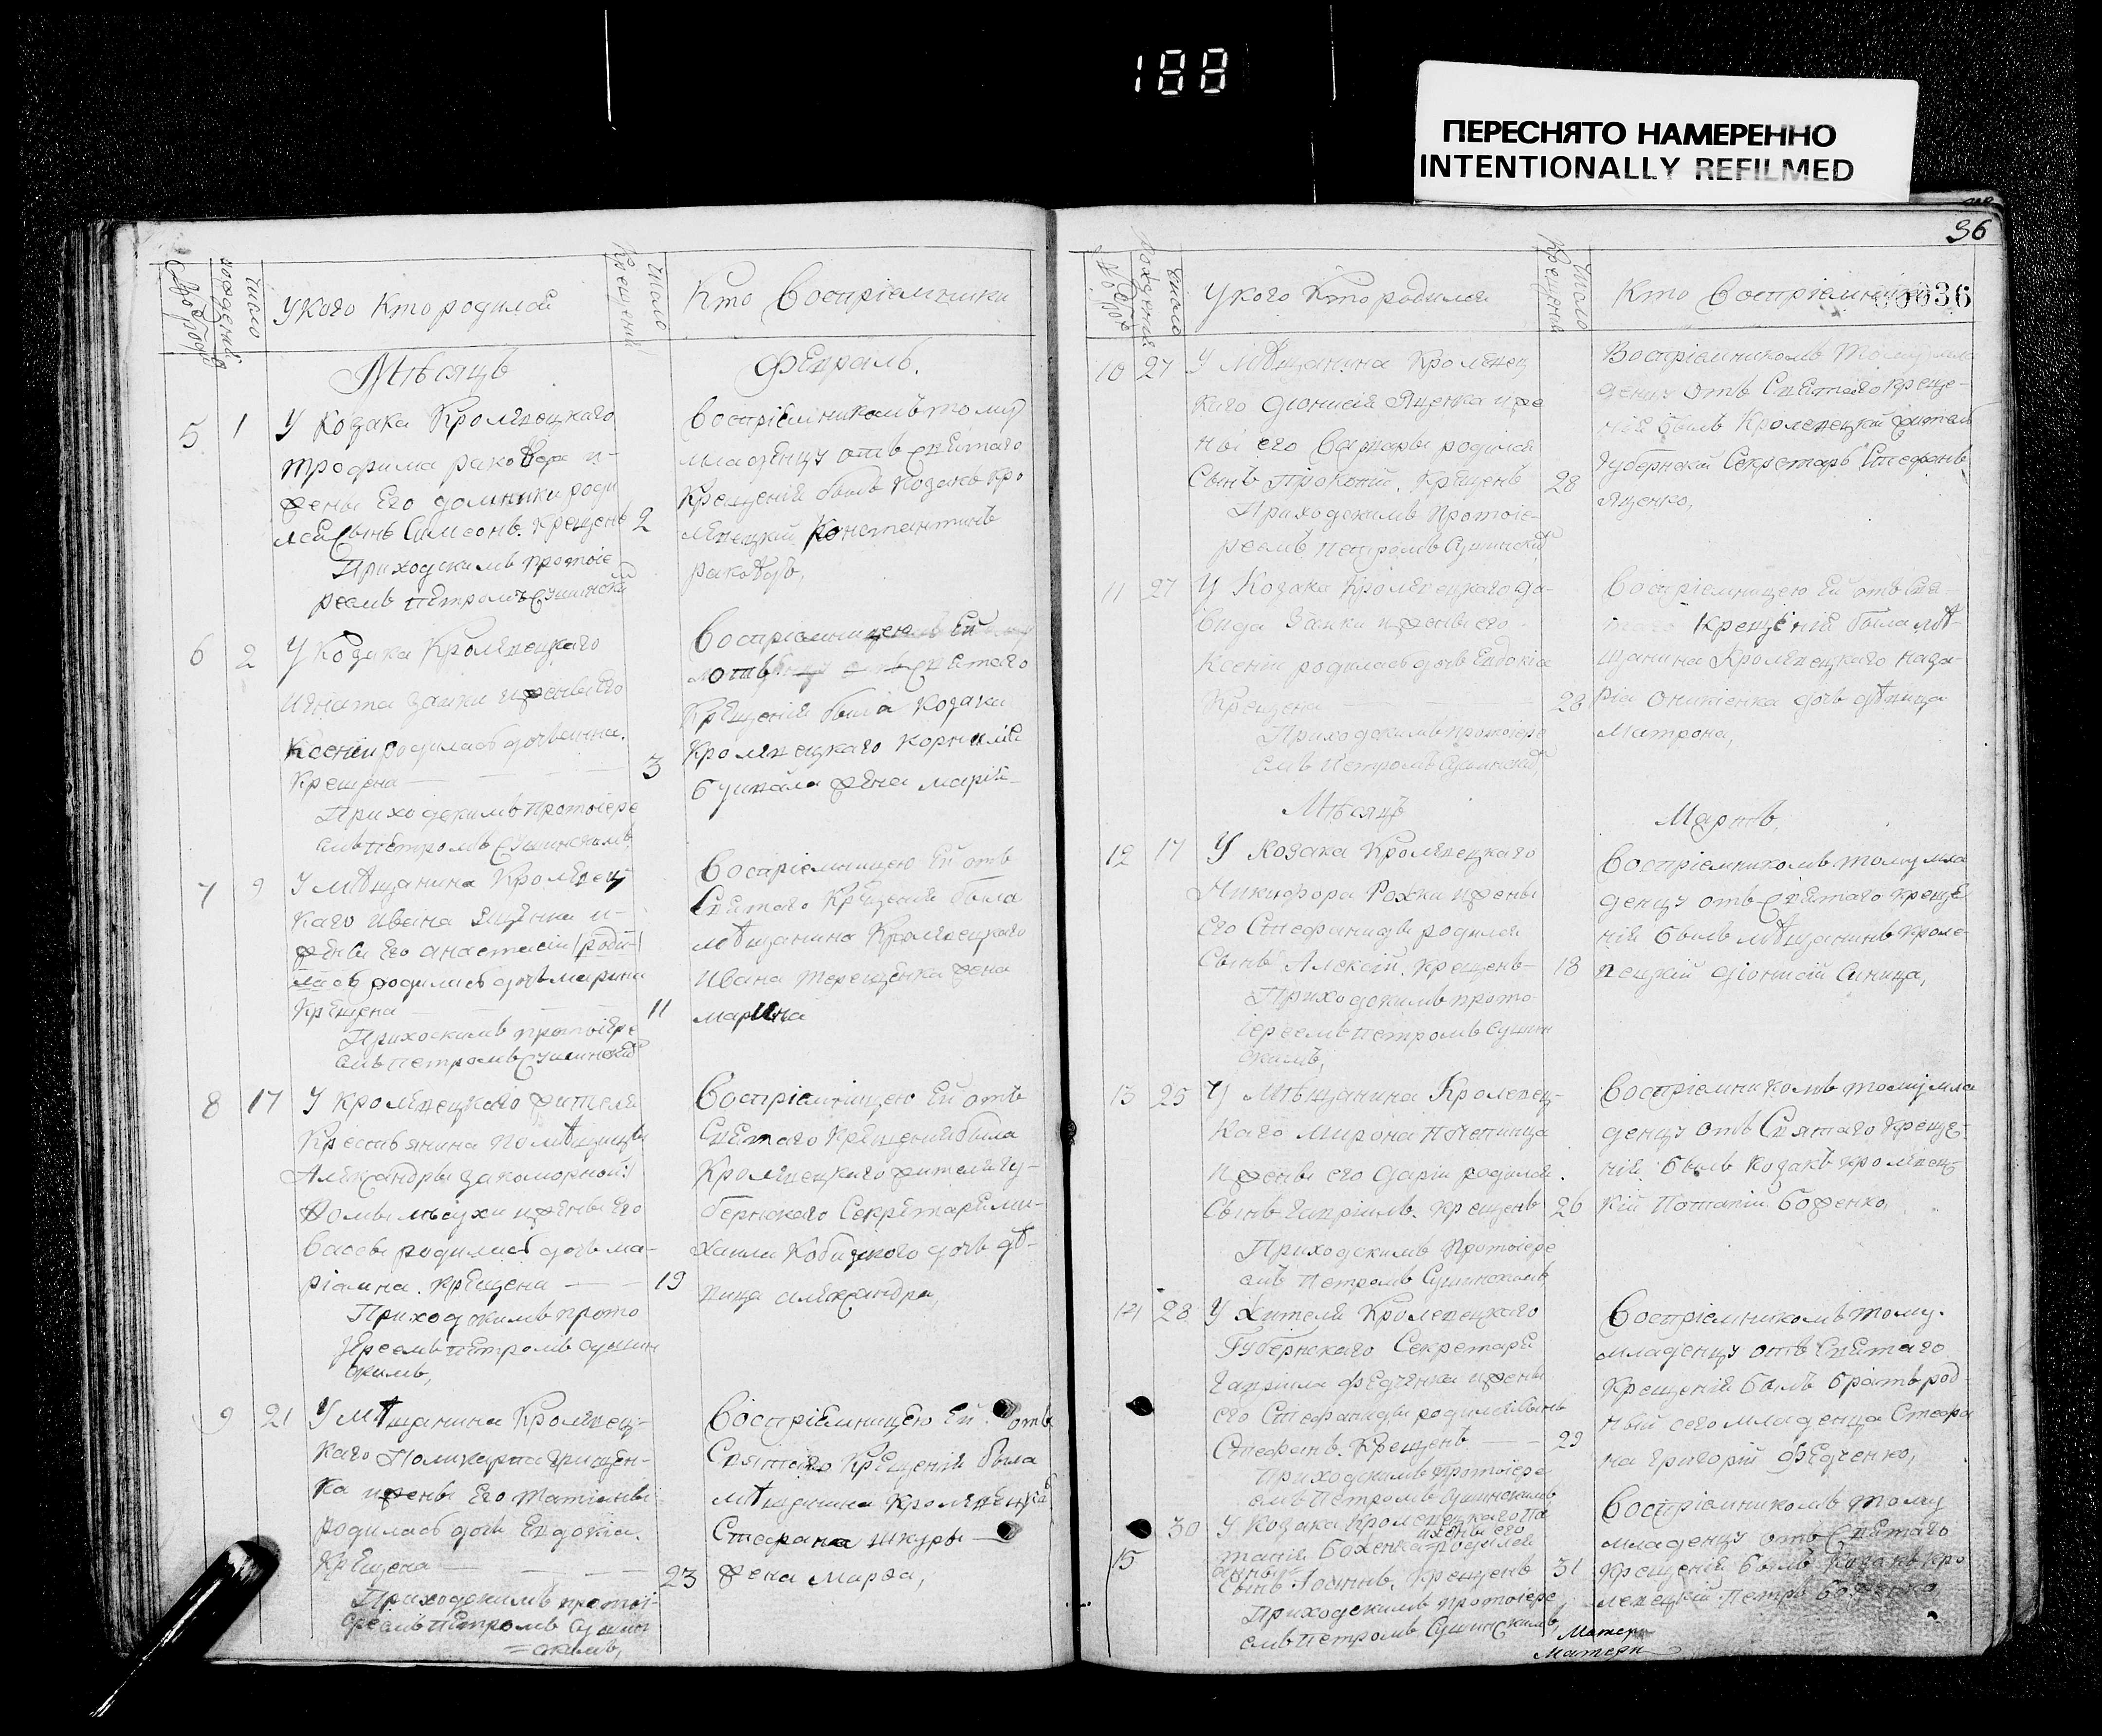 188
ПЕРЕСНЯТО НАМЕРЕННО
INTENTIONALLY REFILMED
36
00036
число рождений
У кого Кто родился
Число Крещений
Кто Воспріемники
Мѣсяцъ
Февраль.
5
1
У Козака Кролевецкаго
Трофима
жены Его домники роди
лся Сынъ Симеонъ. Крещенъ
2
Приходскимъ протоіе
реемъ Петромъ Сушински
Воспріемникомъ тому
младенцу отъ святаго
Крещенія былъ Козакъ Кро
левецкій Константинъ
6
2
У Козака Кролевецкаго
Игната Заики и жены Его
Ксеніи родилась дочь Анна.
Крещена
3
Приходскимъ протоіере
емъ Петромъ Сушинскимъ
Воспріемницею Ей
отъ святаго
Крещенія была Козака
Кролевецкаго Корнилія
жена Марія
7
9
У мѣщанина Кролевец
каго Ивана Яценка и
жены Его Анастасіи /роди/
лась родилась дочь Марина
Крещена
11
Приходскимъ протоіере
емъ Петромъ Сушинским
Воспріемницею Ей отъ
Святаго Крещенія была
мѣщанина Кролевецкаго
Ивана Терещенка жена
Марина
8
17
У Кролевецкаго жителя
Крестьянина помѣщицы
Александры Закоморной
и жены Его
родилась дочь Ма-
ріамна. Крещена
19
Приходскимъ прото
іереемъ Петромъ Сушин
скимъ,
Воспріемницею Ей отъ
Святаго Крещенія была
Кролевецкаго жителя гу-
бернскаго Секретаря Ми-
хаила дочь дѣ-
вица Александра,
9
21
У мѣщанина Кролевец-
каго Поликарпа Грищен-
ка и жены Его Татіаны
родилась дочь Евдокія.
Крещена
23
Приходскимъ протоі-
ереемъ Петромъ Сушин
=скимъ,
Воспріемницею Ей отъ
Святаго Крещенія была
мѣщанина Кролевецка
Стефана Шкуры
жена Марфа,
У кого Кто родился
Число Крещений
Кто Воспріемники
10
27
У Мѣщанина Кролевец
каго Діонисія Яценка и же
ны его Варвары родился
Сынъ Прокопій. Крещенъ
28
Приходскимъ Протоіе
реемъ Петромъ Сушинским
Воспріемникомъ Тому мла
денцу отъ Святаго Креще-
нія былъ Кролевецкій житель
Губернскій Секретарь Стефанъ
Яценко,
11
27
У Козака Кролевецкаго Да-
вида Заики и жены его
Ксеніи родилась дочь Евдокіа
Крещена
28
Приходскимъ протоіере
емъ Петромъ Сушинским,
Воспріемницею Ей отъ Свя-
Крещенія была мѣ-
щанина Кролевецкаго Наза-
рія дочь дѣвица
Матрона,
Мѣсяцъ
Мартъ,
12
17
У Козака Кролевецкаго
Никифора Рожки и жены
его Стефаниды родился
Сынъ Алексій. Крещенъ
18
Приходскимъ прото-
іереемъ Петромъ Сушин
скимъ,
Воспріемникомъ тому мла
денцу отъ Святаго Креще
нія былъ мѣщанинъ Кроле-
вецкій Діонисій Синица,
13
25
У Мѣщанина Кролевец-
каго Мирона
и жены его Даріи родился
Сынъ Гавріилъ. Крещенъ
26
Приходскимъ Протоіере
емъ Петромъ Сушинскимъ
Воспріемникомъ тому мла
денцу отъ Святаго Креще-
нія былъ Козакъ Кролевец-
кій Потапій Боженко,
14
28
У Жителя Кролевецкаго
Губернскаго Секретаря
Гавріила Федченка и жены
его Стефаниды родился Сынъ
Стефанъ. Крещенъ
29
Приходскимъ Протоіере
емъ Петромъ Сушинскимъ
Воспріемникомъ тому.
младенцу отъ Святаго
Крещенія былъ братъ род-
ный сего младенца Стефа
на Григорій Федченко,
15
30
У Козака Кролевецкаго По
тапія Боженка родился
и жены его
Сынъ Іоаннъ. Крещенъ
31
Приходскимъ протоіере
емъ Петромъ Сушинскимъ,
Воспріемникомъ тому
младенцу отъ Святаго
Крещенія былъ Козакъ Кро
левецкій Петръ Боженко
Матери
Матери